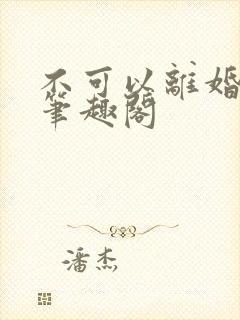 不可以離婚
筆趣閣
潘杰